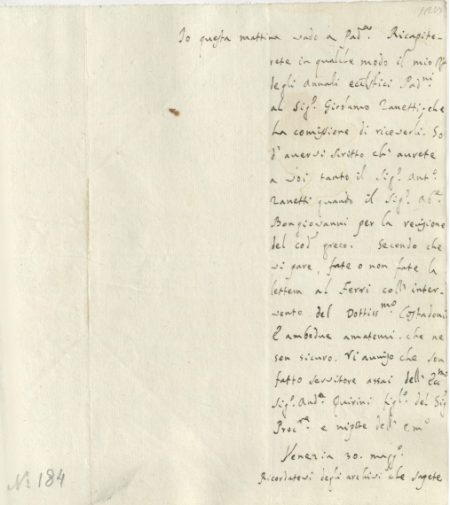 Io questa mattina vado a Pad.ᵃ Ricapite-
rete in qualche modo il mio
degli Annali ecclesiastici Pad.ⁿⁱ
al Sig.ʳ Girolamo Zanetti, che
ha comissione di riceverli. So
d'avervi scritto ch'avrete
a voi tanto il Sig.ʳ Ant.º
Zanetti quando il Sig.ʳ Ab.ᵉ
Bongiovanni per la revisione
del cod.ᵉ greco. Secondo che
vi pare, fate o non fate la
lettera al Ferri coll'inter-
vento del Dottiss.ᵐᵒ Costadoni
E ambedue amatemi, che ne
son sicuro. Vi avviso che son
fatto servitore assai dell'
Sig.ʳ And.ᵃ Quirini figl.º del Sig.
Proc.ʳᵉ e nipote dell'
Venezia 30. magg.º
Ricordatevi degli archivi che sapete
N.º 184